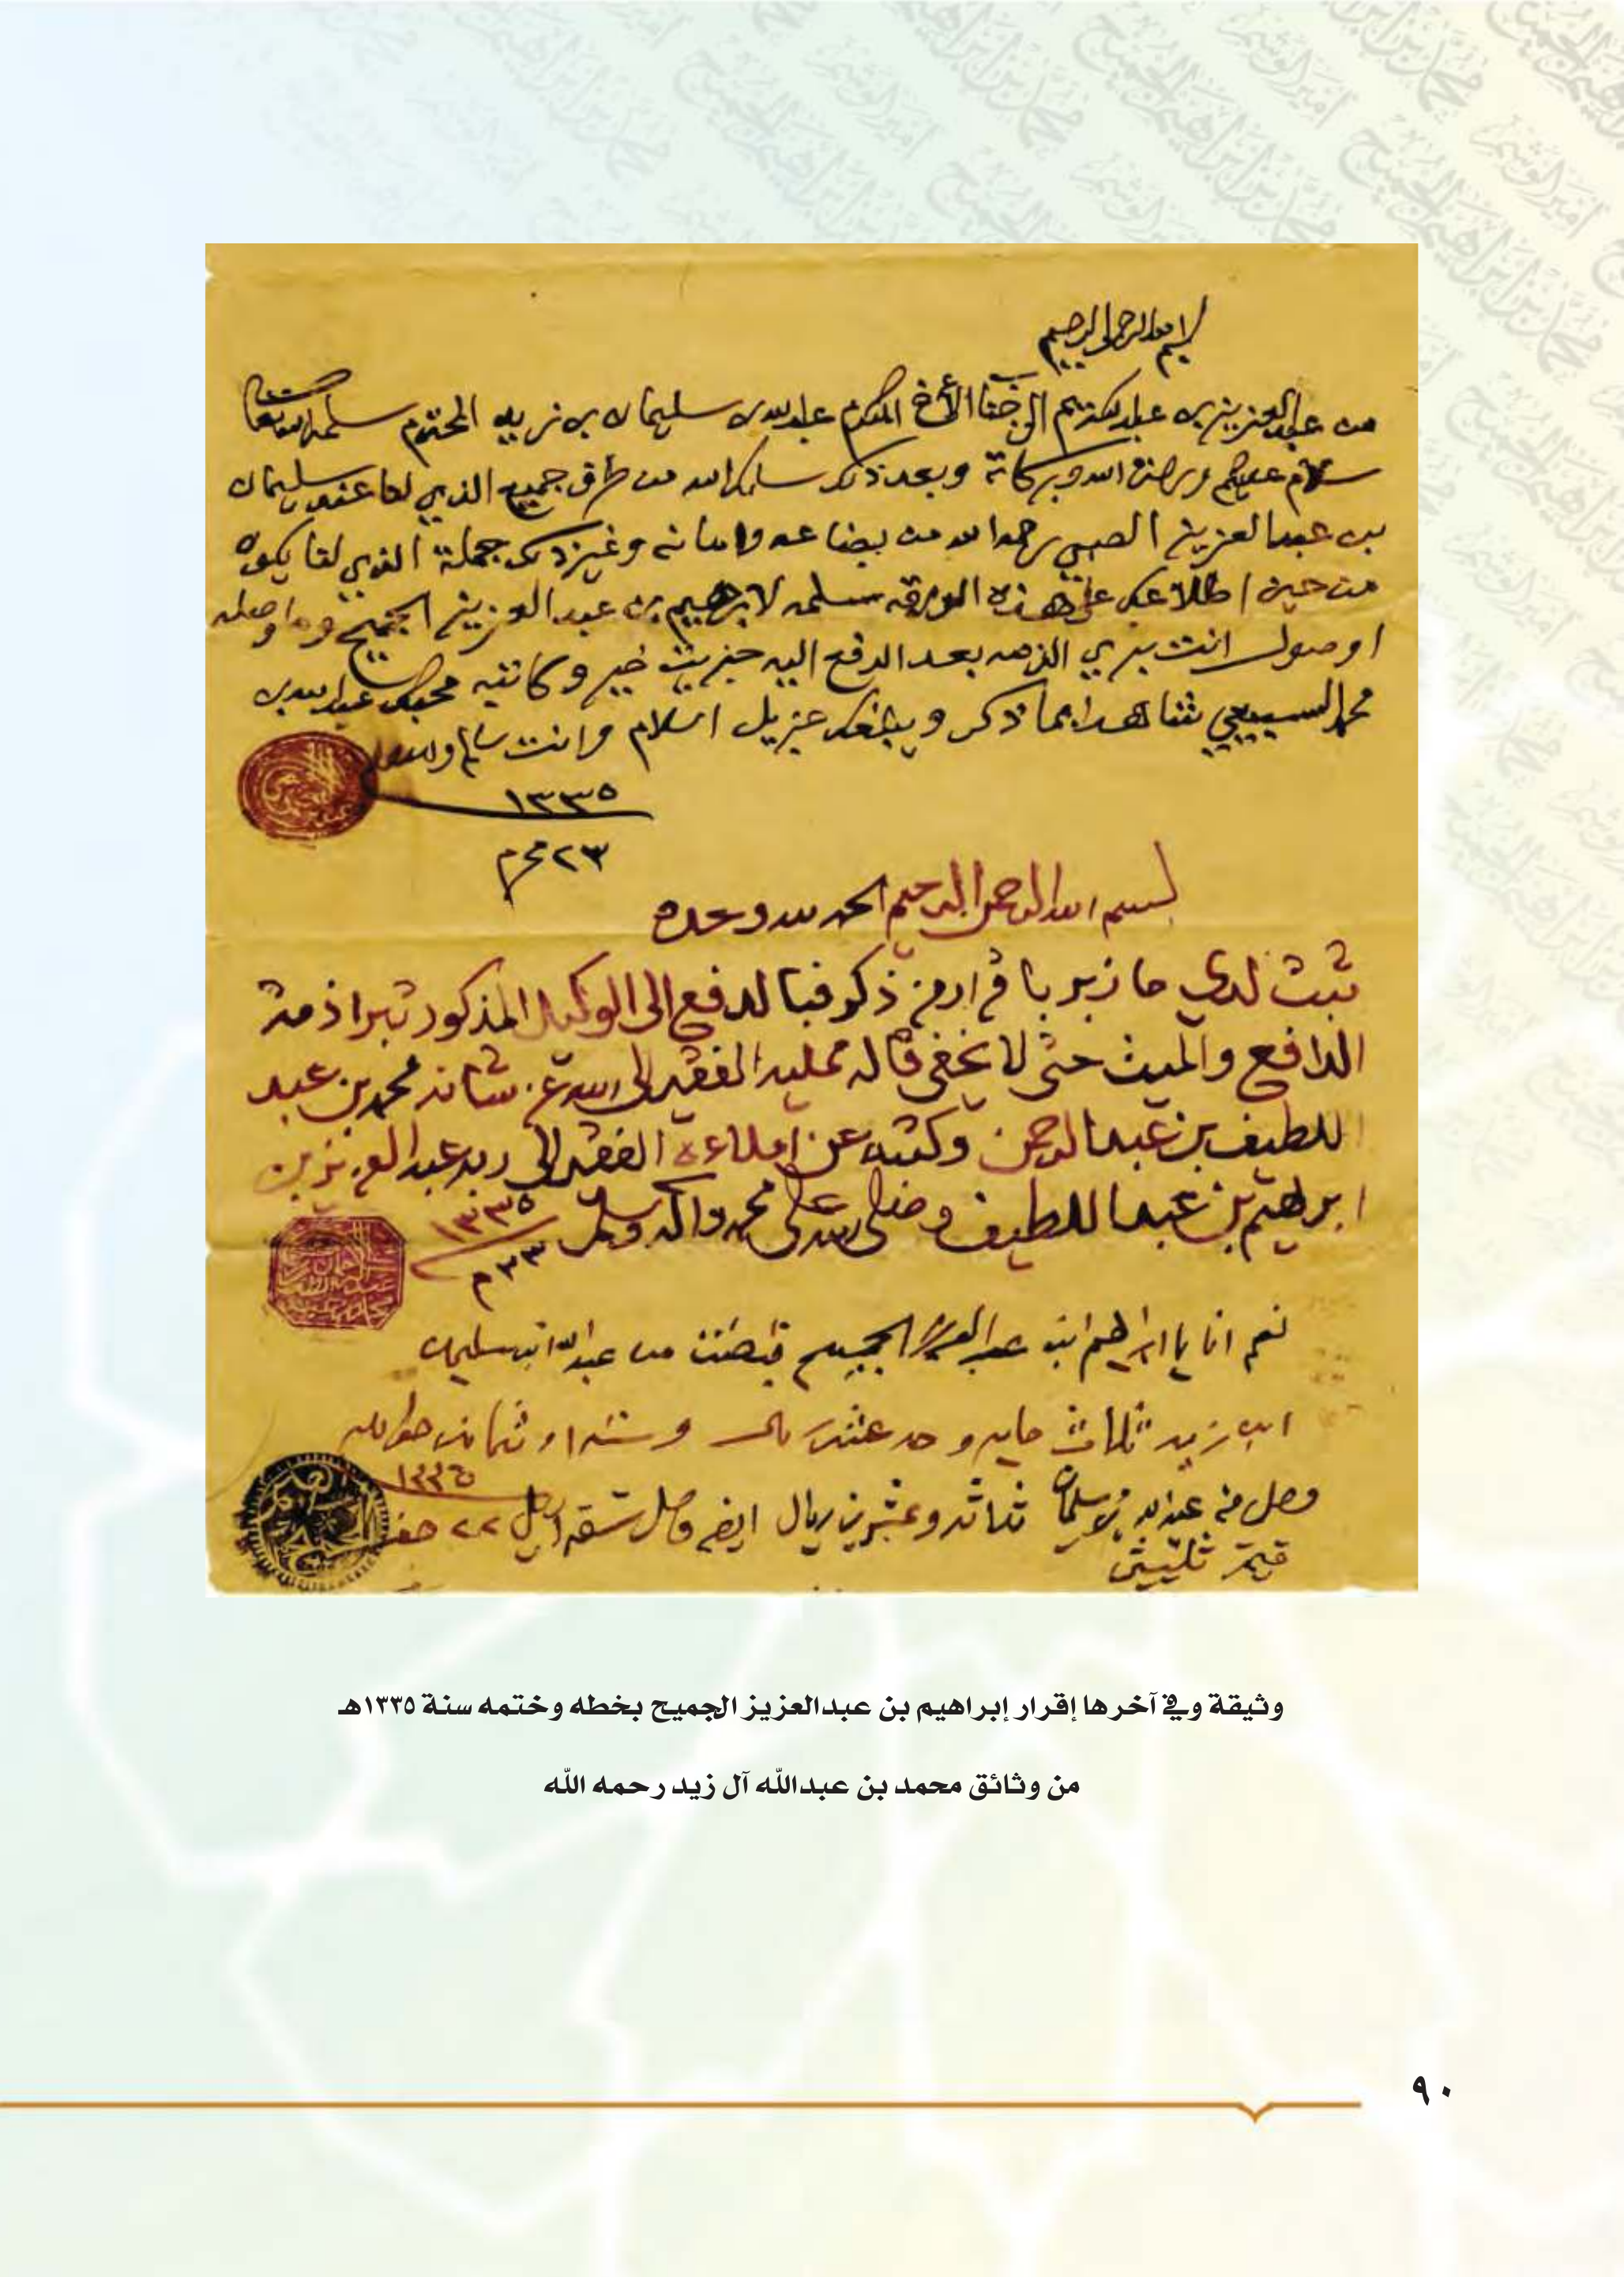 بسم الله الرحمن الرحيم
من عبدالعزيز بن عبدالكريم الى جناب الأخ المكرم عبدالله بن سليمان بن زيد المحترم سلمه الله تعالى
سلام عليكم ورحمة الله وبركاته وبعد ذلك سلمك الله من طرف جميع الذي لنا عند سليمان
بن عبدالعزيز رحمه الله من بضاعه وامانه وغير ذلك جملة الذي لنا يكون
من حين اطلاعك على هذه الورقه سلمه لابرهيم بن عبد العزيز الجميح وما وصله
اوصول انت بري الذمه بعد الدفع اليه جزيت خير وكاتبه عبدالله بن
محمد السبيعي شاهدا بما ذكر ويبلغك جزيل السلام وانت سالم والسلام
١٣٣٥
٢٣ محرم
بسم الله الرحمن الرحيم الحمد لله وحده
ثبت لدي ما زبر باقرار من ذكر فبالدفع الى الوكيل المذكور تبرا ذمة
الدافع والميت حتى لا يخفى قاله ممليه الفقير الى الله عز شانه محمد بن عبد
اللطيف بن عبدالرحمن وكتبه عن املاءه الفقير الى ربه عبدالعزيز بن
ابرهيم بن عبداللطيف وصلى الله على محمد واله وسلم ١٣٣٥
٢٣ م
نعم انا يا ابراهيم ابن عبد العزيز الجميح قبضت من عبدالله ابن سليمان
ابن زيد ثلاث مايه و عشر وستة او ثمان
وصل من عبدالله بن سليمان ثلاثه وعشرين ريال ايضا وصل ٢٢ صفر
قيمة
وثيقة وفي آخرها إقرار إبراهيم بن عبدالعزيز الجميح بخطه وختمه سنة ١٣٣٥هـ
من وثائق محمد بن عبدالله آل زيد رحمه الله
٩٠